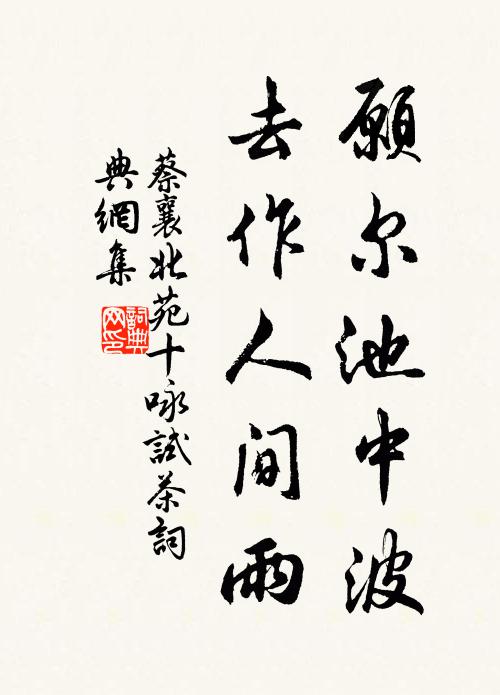 願尔池中波
去作人间雨
蔡襄北苑十咏試茶詞
典網集
詞典
网印